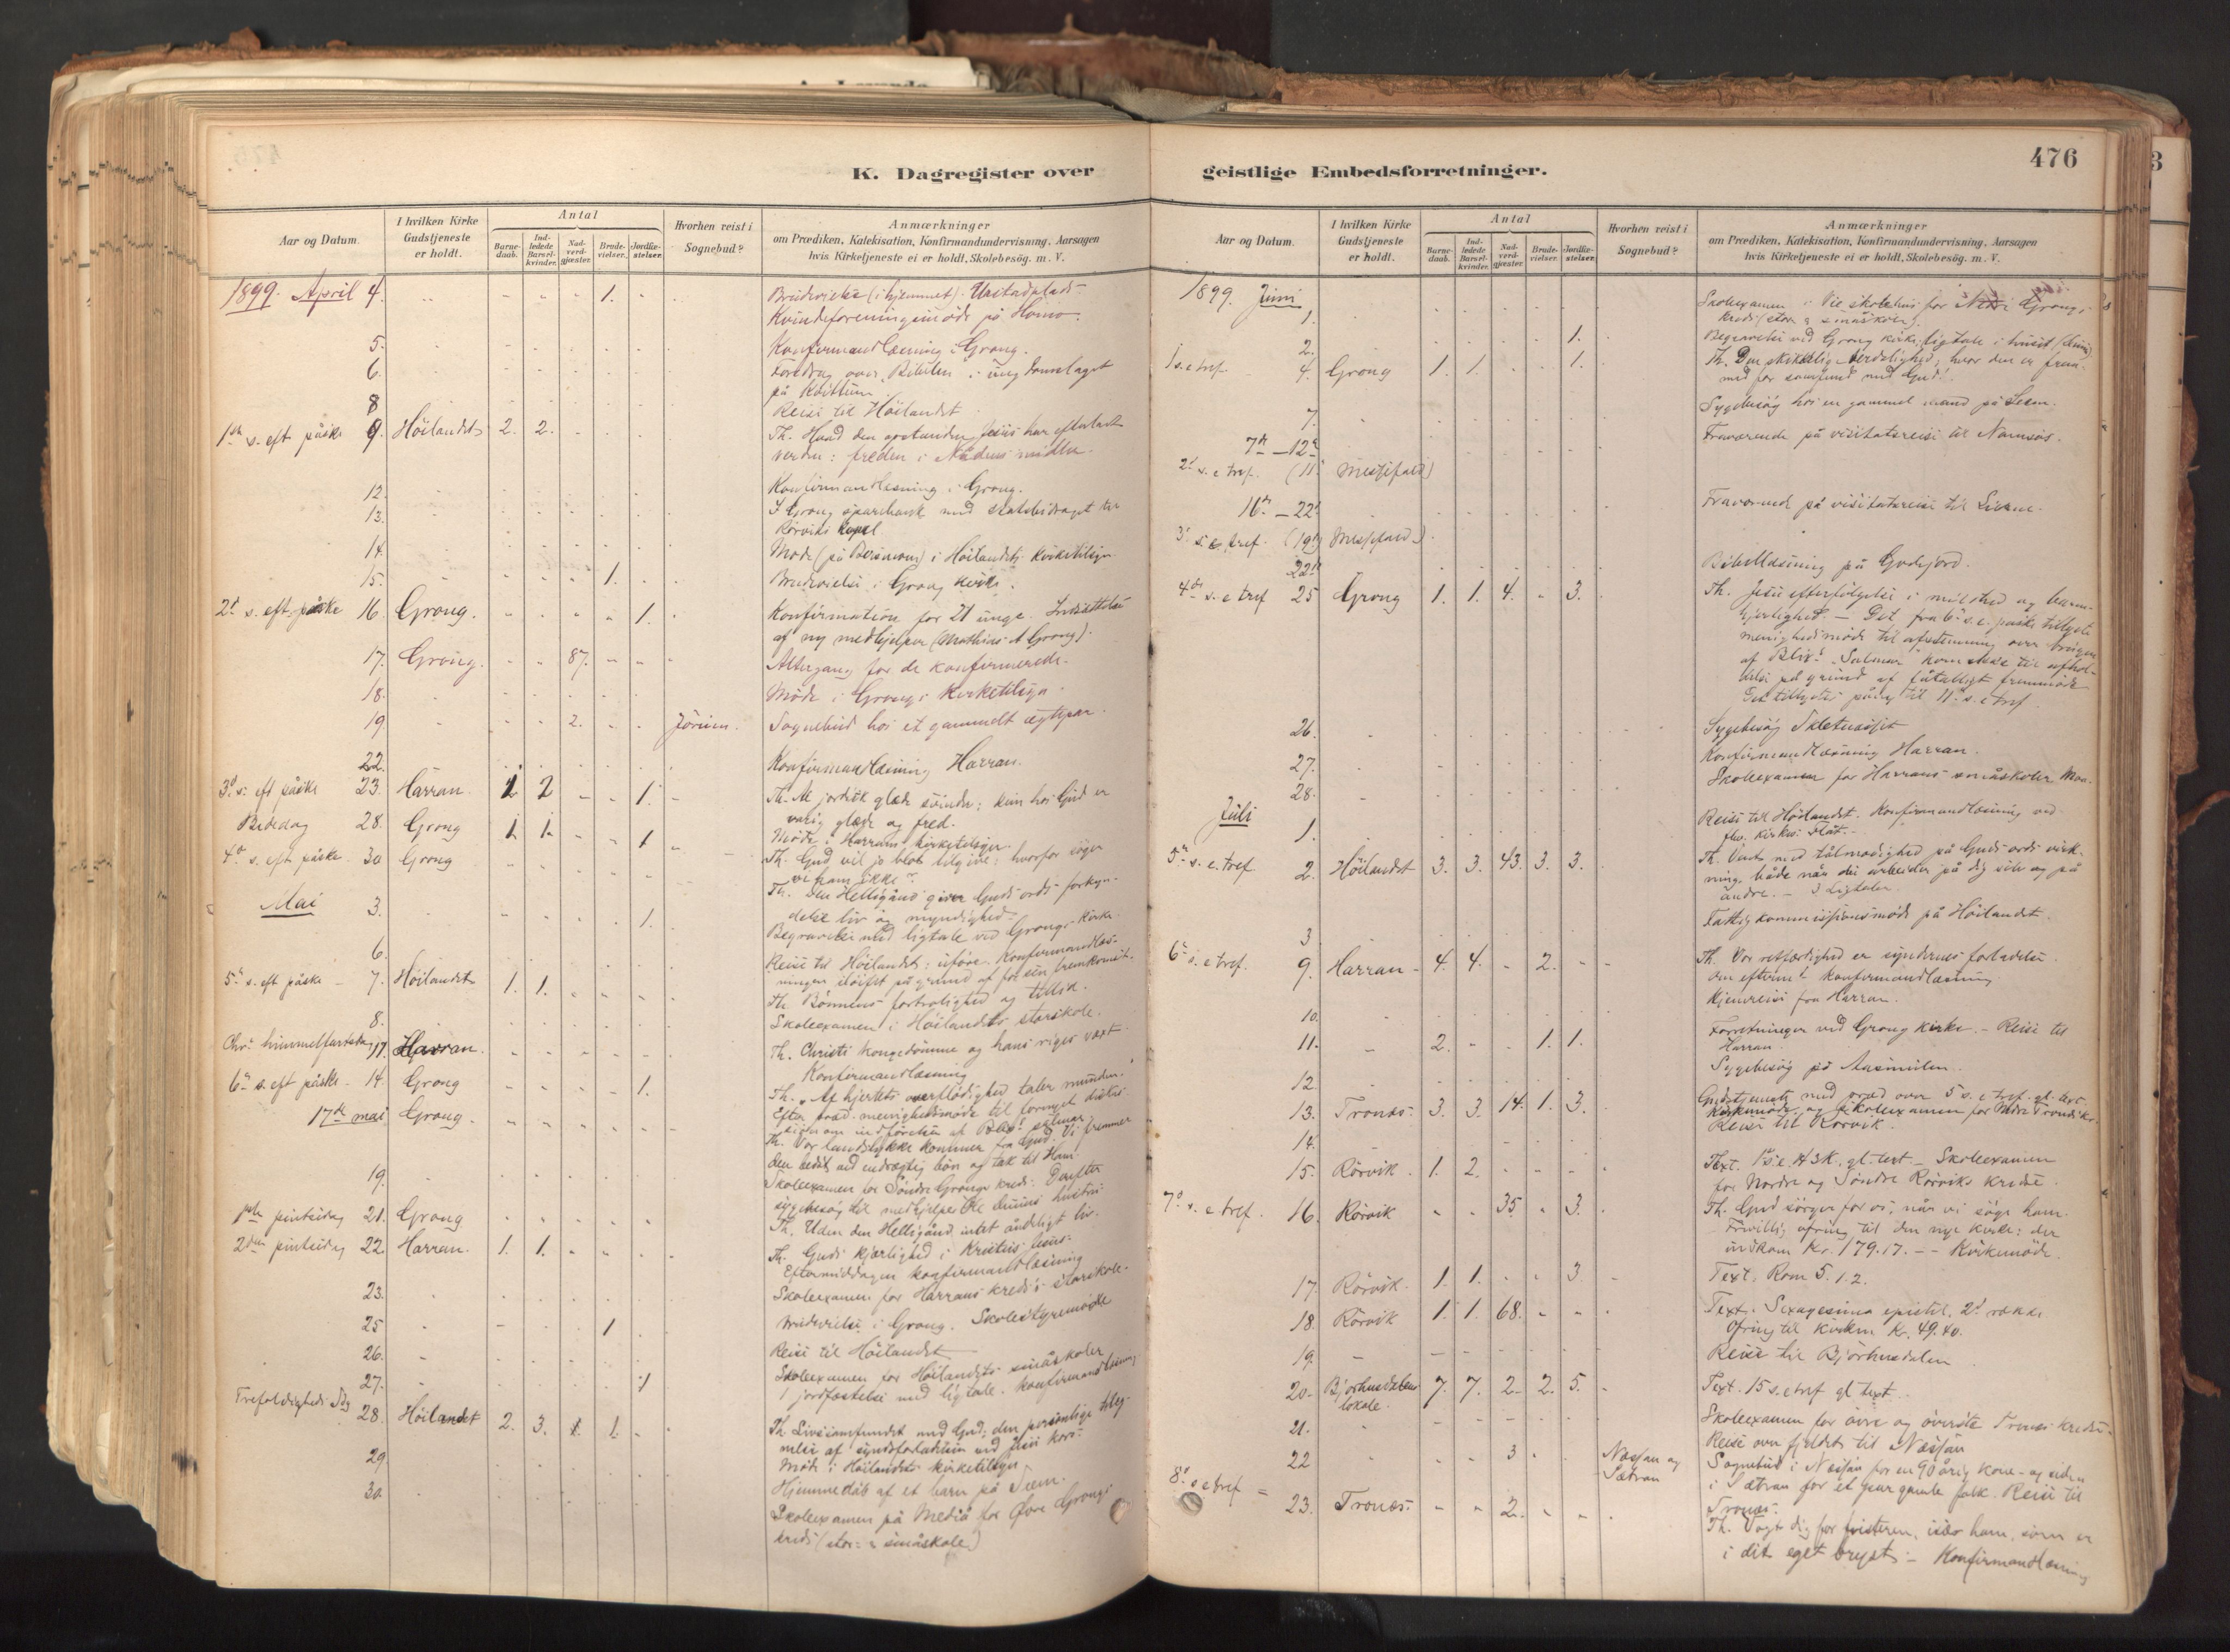 K. Dagregister over
Aar og Datum.
I hvilken Kirke
Gudstjeneste
er holdt.
Antal
Barne-
daab.
Ind-
ledede
Barsel-
kvinder.
Nad-
verd-
gjæster.
Brude-
vielser.
Jordfæ-
stelser.
Hvorhen reist i
Sognebud?
Anmærkninger
om Prædiken, Katekisation, Konfirmandundervisning, Aarsagen
hvis Kirketjeneste ei er holdt, Skolebesög. m. V.
1899. April 4. 1. Brudevielse (i hjemmet).
Kvindeforeningsmöde på Homo.
5. Konfirmandlæsning i Grong.
6. Foredrag over Bibelen i ungdomslaget
på
8 Reise til Höilandet
1ste s. eft påske 9. Höilandets 2. 2. Th. Hvad den opstandne Jesus har efterladt
verden: freden i Nådens midler.
12. Konfirmandlæsning i Grong.
13. I Grong sparebank med
Rörviks kapel
14. Möde i Höilandets kirketilsyn
15. 1. Brudevielse i Grong kirke.
2d s. eft. påske 16. Grong. 1. Konfirmation for 21 unge. Indsættelse
af ny medhjelper (Mathias A Grong).
17. Grong. 87. Altergang for de konfirmerede.
18. Möde i Grongs Kirketilsyn.
19. 2. Jörum. Sognebud hos et gammelt ægtepar.
22. Konfirmandlæsning Harran.
3d s. eft påske 23. Harran. 1 2 1. Th. Al jordisk glæde svinder; kun hos Gud er
varig glæde og fred.
Möde i Harrans kirketilsyn
Bededag 28. Grong 1. 1. 1 Th. Gud vil jo blot tilgive: hvorfor söger
vi ham ikke?
4de s. eft påske. 30 Grong Th. Den Helligånd giver Guds ords forkyn-
delse liv og myndighed.
Mai 3. 1. Begravelse med ligtale ved Grongs kirke.
6. Reise til Höilandet: uföre. Konfirmandlæs-
ningen på grund af for sen fremkomst.
5te s. eft påske 7. Höilandets 1. 1. Th. Bönnens fortrolighed og tillid.
8. Skoleexamen i Höilandets storskole.
Chri himmelfartsdag 11. Harran. Th. Christi kongedömme og hans riges vext.
Konfirmandlæsning
6te s. eft påske 14. Grong 1. Th. „Af hjertets overflödighed taler munden."
Efter præd. menighedsmöde til
om indförelse af Blix's salmer.
17de mai Grong. Th. Vor landslykke kommer fra Gud. Vi fremmer
den bedst ved endrægtig bön og tak til Ham.
19. Skoleexamen for Söndre Grongs kreds. Derefter
sygebesög til medhjelper Ole hustru
1ste pintsedag 21. Grong Th. Uden den Helligånd intet åndeligt liv.
2den pintsedag 22. Harran. 1. 1. Th. Guds kjærlighed i Kristus Jesus.
Eftermiddagen konfirmandlæsning
23. Skoleexamen for Harrans kreds's storskole.
25 1 Brudevielse i Grong. Skolestyremöde
26. Reise til Höilandet
27. 1 Skoleexamen for Höilandets småskoler
1 jordfæstelse med ligtale. Konfirmandlæsning
Trefoldigheds Sdg 28. Höilandet 2. 3. 1. Th. Livssamfundet med Gud; den personlige tileg-
nelse af syndsforladelsen ved Jesu kors.
29 Möde i Höilandets kirketilsyn
30. Hjemmedåb af et barn på
Skoleexamen på Mediå for Övre Grongs
kreds (stor- & småskole)
geistlige Embedsforretninger.
476
Aar og Datum.
I hvilken Kirke
Gudstjeneste
er holdt.
Antal
Barne-
daab.
Ind-
ledede
Barsel-
kvinder.
Nad-
verd-
gjæster.
Brude-
vielser.
Jordfæ-
stelser.
Hvorhen reist i
Sognebud?
Anmærkninger
om Prædiken, Katekisation, Konfirmandundervisning, Aarsagen
hvis Kirketjeneste ei er holdt, Skolebesög. m. V.
1899. Juni
1. Skoleexamen i Vie skolehus for Grongs
kreds (stor & småskole).
2. 1. Begravelse ved Grong kirke, ligtale i huset
1 s. e tref. 4. Grong 1. 1. 1. Th. Den skikkelige verdslighed, hvor den er frem-
med for samfund med Gud.
7. Sygebesög hos en gammel mand på
7de – 12te Fraværende på visitatsreise til Namsos.
2d s. e tref. (11te Messefald)
16de – 22d Fraværende på visitatsreise til Lierne.
3d s. e tref. (19de Messefald).
22de Bibellæsning på Gudfjord.
4de s. e tref 25 Grong 1. 1. 4. 3. Th. Jesu efterfölgelse i mildhed og barm-
hjertighed. – Det fra 6te s. e. påske tillyste
menighedsmöde til afstemning over brugen
af Blix's „Salmer" kom ikke til afhol-
delse på grund af fåtalligt fremmöde
Det tillystes påny til 11te s. e tref.
26. Sygebesög
27. Konfirmandlæsning Harran.
28. Skoleexamen for Harrans småskoler
Juli
1. Reise til Höilandet. Konfirmandlæsning ved
5te s. e. tref 2. Höilandet 3. 3. 43. 3. 3. Th. Vent med tålmodighed på Guds ords virk-
ning, både når du arbeider på dig selv og på
andre. – 3 Ligtaler.
3 Fattigkommissionsmöde på Höilandet.
6te s. e tref. 9. Harran 4. 4. 2. Th. Vor retfærdighed er syndernes forladelse.
Om efterm. konfirmandlæsning
10. Hjemreise fra Harran.
11. 2. 1. 1. Forretninger ved Grong kirke. – Reise til
Harran.
12. Sygebesög på
13. Tronæs 3. 3. 14. 1. 3. Gudstjeneste med præd over 5 s. e tref. gl. text.
Kirkemöde og skoleexamen for
14. Reise til Rörvik.
15. Rörvik 1. 2. Text. gl. text – Skoleexamen
for Nordre og Söndre Rörviks kredse.
7de s. e tref. 16. Rörvik 35 3. Th. Gud sörger for os, når vi söge ham.
Frivillig ofring til den nye kirke: der
indkom Kr. 179.17. – – Kirkemöde.
17. Rörvik. 1. 1. 3. Text, Rom 5. 1. 2.
18. Rörvik 1. 1. 68. Text. Sexagesima epistel, 2d række
Ofring til kirken Kr. 49.40.
19. Reise til Bjorhusdalen
20. Bjorhusdalens
lokale. 7. 7. 2 2. 5. Text. 15 s. e tref gl text.
21. Skoleexamen for övre og överste Tronæs kreds.
Reise over fjeldet til Næssån
22 3 Næsån og
Sætran Sognebud i Næsån for en 90årig kone og siden
i Sætran for et par gamle folk. Reise til
Tronæs.
8de s e tref 23. Tronæs 2. Th. Vogt dig for fristeren, især ham, som er
i dit eget bryst. – Konfirmandlæsning